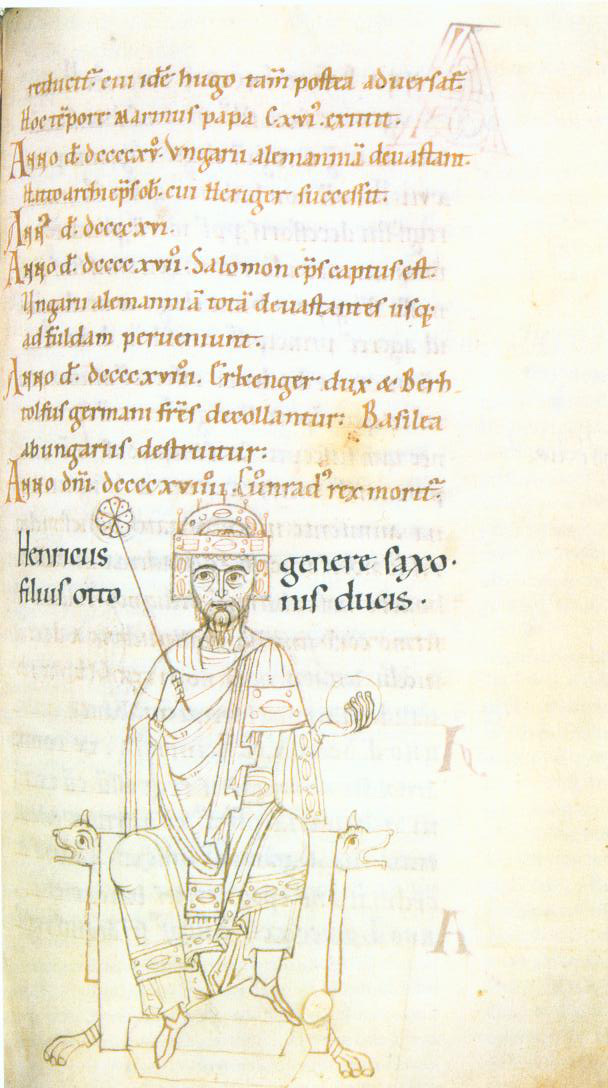 reducit᷑. cui idē hugo tam̄ postea adversat᷑.
Hoc tēpore Marinus papa C.xvi᷒. extitit.
Anno d̄. dcccc.xv᷒. Ungarii alemanniā devastant.
Hatto archiep̄s ob̄. cui Heriger successit.
Anno d̄. dcccc.xvi.
Anno d̄. dcccc.xvii᷒. Salomon ep̄s captus est.
Ungarii alemanniā totā devastantes usq;
ad fuldam perveniunt.
Anno d̄. dcccc.xviii᷒. Erkenger dux & Berh
tolfus germani fr̄es decollantur: Basilea
ab ungariis destruitur:
Anno dn̄i. dcccc.xviiii᷒. Cůnrad᷒ rex morit᷑.
Henricus genere saxo.
filius otto nis ducis.